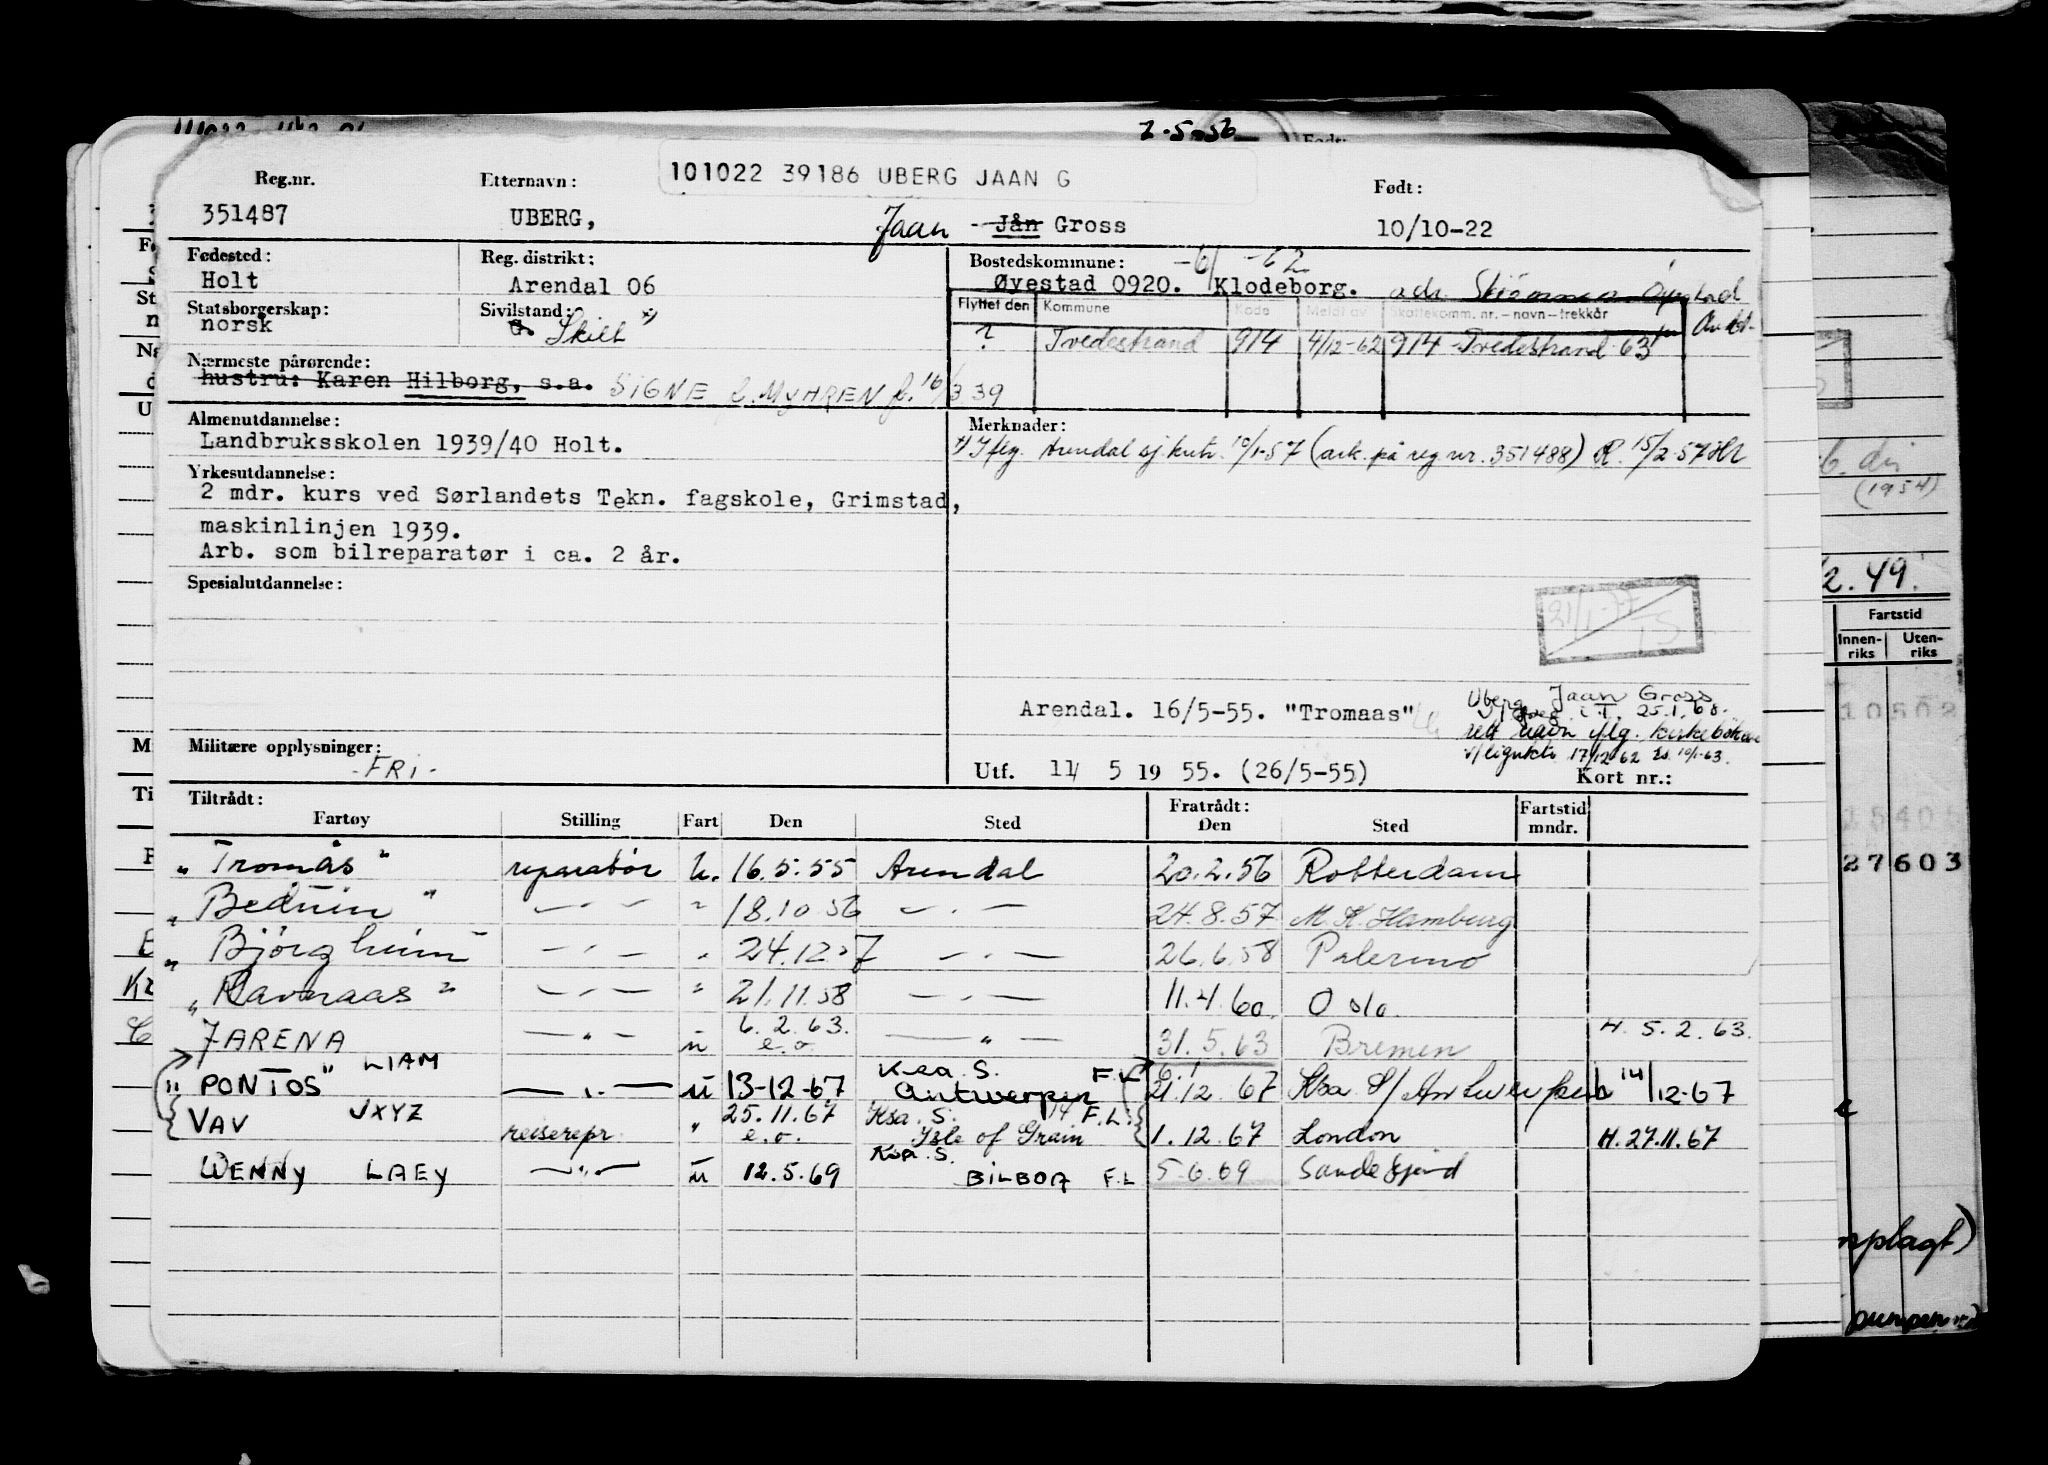 2.5.56
101022 39186 UBERG JAAN G
Reg.nr. Etternavn: Født:
351487 UBERG, Jaan Jån Gross 10/10-22
Fødested: Reg. distrikt: Bostedskommune: -6/ -62
Holt Arendal 06 Øyestad 0920. Klodeborg. adr.
Statsborgerskap: Sivilstand: Flyttet den Kommune Kode Meldt av Skattekomm. nr.-navn-trekkår
norsk Skilt x)
? Tvedestrand 914 4/12-62 914 Tvedestrand 63
Nærmeste pårørende:
hustru: Karen Hilborg, s.a. SIGNE f. MYHREN f. 16/3 39
Almenutdannelse: Merknader:
Landbruksskolen 1939/40 Holt. x) Iflg. Arendal sj.kntr. 10/1-57 (ark. på reg nr. 351488) R. 15/2-57
Yrkesutdannelse:
2 mdr. kurs ved Sørlandets Tekn. fagskole, Grimstad,
maskinlinjen 1939.
Arb. som bilreparatør i ca. 2 år.
Spesialutdannelse:
21/1-77
TS
Arendal. 16/5-55. "Tromaas"
Uberg, Jaan Gross
i T. 25.1.68.
rett navn iflg. kirkeboken
17/12 62 10/1-63.
Militære opplysninger:
-FRI-
Utf. 11/ 5 19 55. (26/5-55) Kort nr.:
Tiltrådt: Fratrådt: Fartstid
Fartøy Stilling Fart Den Sted Den Sted mndr.
"Tromås" reparatør u. 16.5.55 Arendal 20.2.56 Rotterdam
"Beduin" — " — " 18.10 56 — " — 24.8.57 M.K. Hamburg
"Bjørgheim" — " — " 24.12.57 — " — 26.6.58 Palermo
"Ravnaas" — " — " 21.11.58 — " — 11.4.60. Oslo.
JARENA — " — u 6.2.63. e.o. — " — 31.5.63 Bremen H. 5.2.63.
"PONTOS" LIAM — " — u 13-12-67 Ksa. S. Antwerpen F.L. 21.12.67 Ksa S/ Antwerpen 14/12-67
VAV JXYZ reiserepr. " 25.11.67 e.o. Ksa. S. Isle of Grain F.L. 1.12.67 London H. 27.11.67
WENNY LAEY — " — u 12.5.69 Ksa. S. BILBOA F.L 5.6.69 Sandefjord
(1954)
2.49.
Fartstid
Innen-
riks
Uten-
riks
10502
27603